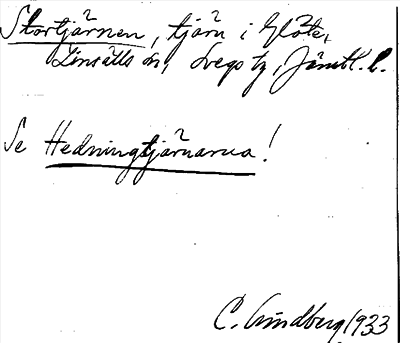 Stortjärnen, tjärn i Glöte,
Linsälls sn, Svegs tg, Jämtl. l.
Se Hedningstjärnarna!
C. Lindberg 1933